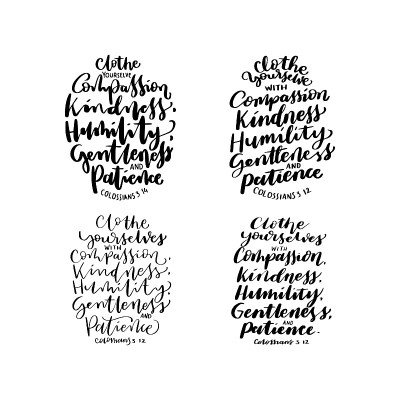 Clothe
YOURSELVE
Compassion
Kindness,
Humility,
Gentleness
AND
Patience
COLOSSIANS 3 14
Clothe
Yourselve
WITH
Compassion
Kindness
Humility
Gentleness
AND
Patience
COLOSSIANS 3 12
Clothe
yourselves
WITH
Compassion,
Kindness,
Humility,
Gentleness
AND
Patience
COLOSSIANS 3 12
Clothe
yourselves
WITH
Compassion,
Kindness,
Humility,
Gentleness,
AND
Patience.
Colossians 3 12